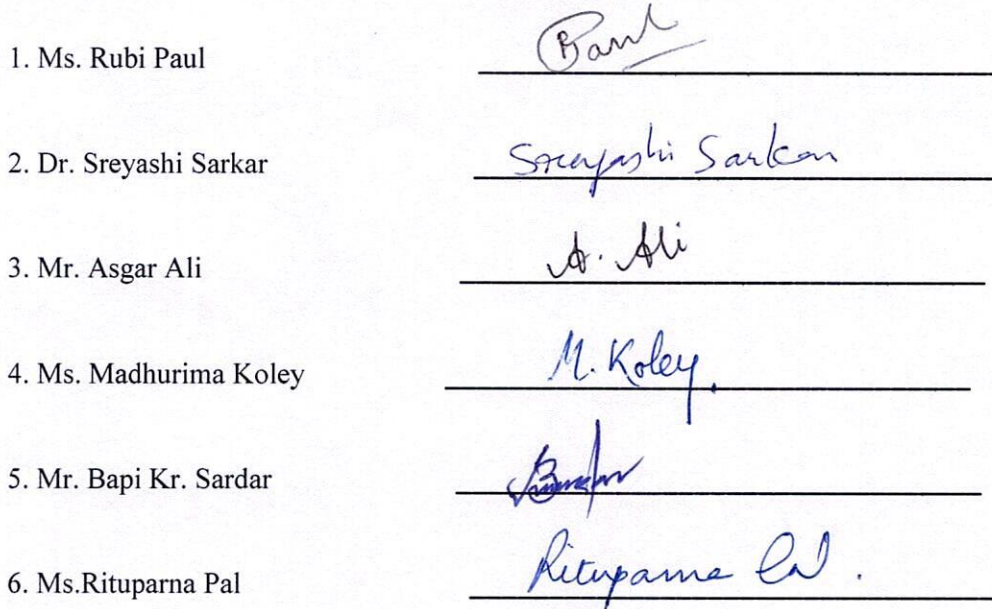 1. Ms. Rubi Paul
Paul
2. Dr. Sreyashi Sarkar
Sreyashi Sarkar
3. Mr. Asgar Ali
A. Ali
4. Ms. Madhurima Koley
M. Koley.
5. Mr. Bapi Kr. Sardar
6. Ms.Rituparna Pal
Rituparna Pal.